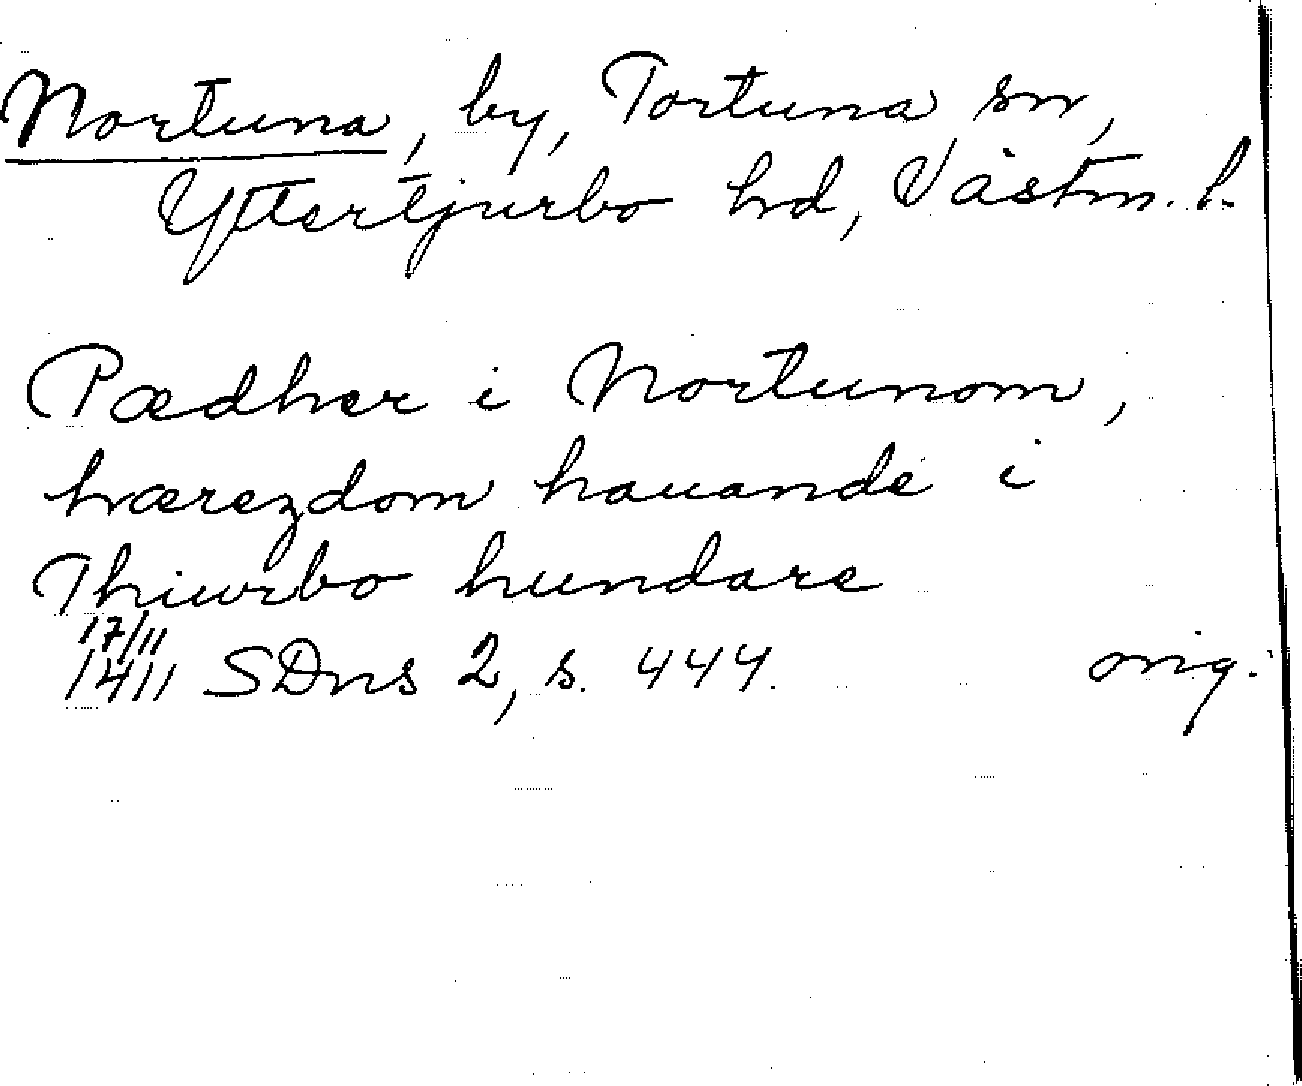 Nortuna, by, Tortuna sn,
Yttertjurbo hd, Västm. l.
Pædher i Nortunom,
hærezdom hauande i
Thiurbo hundare
17/11
1411 SDns 2, s. 444. orig.